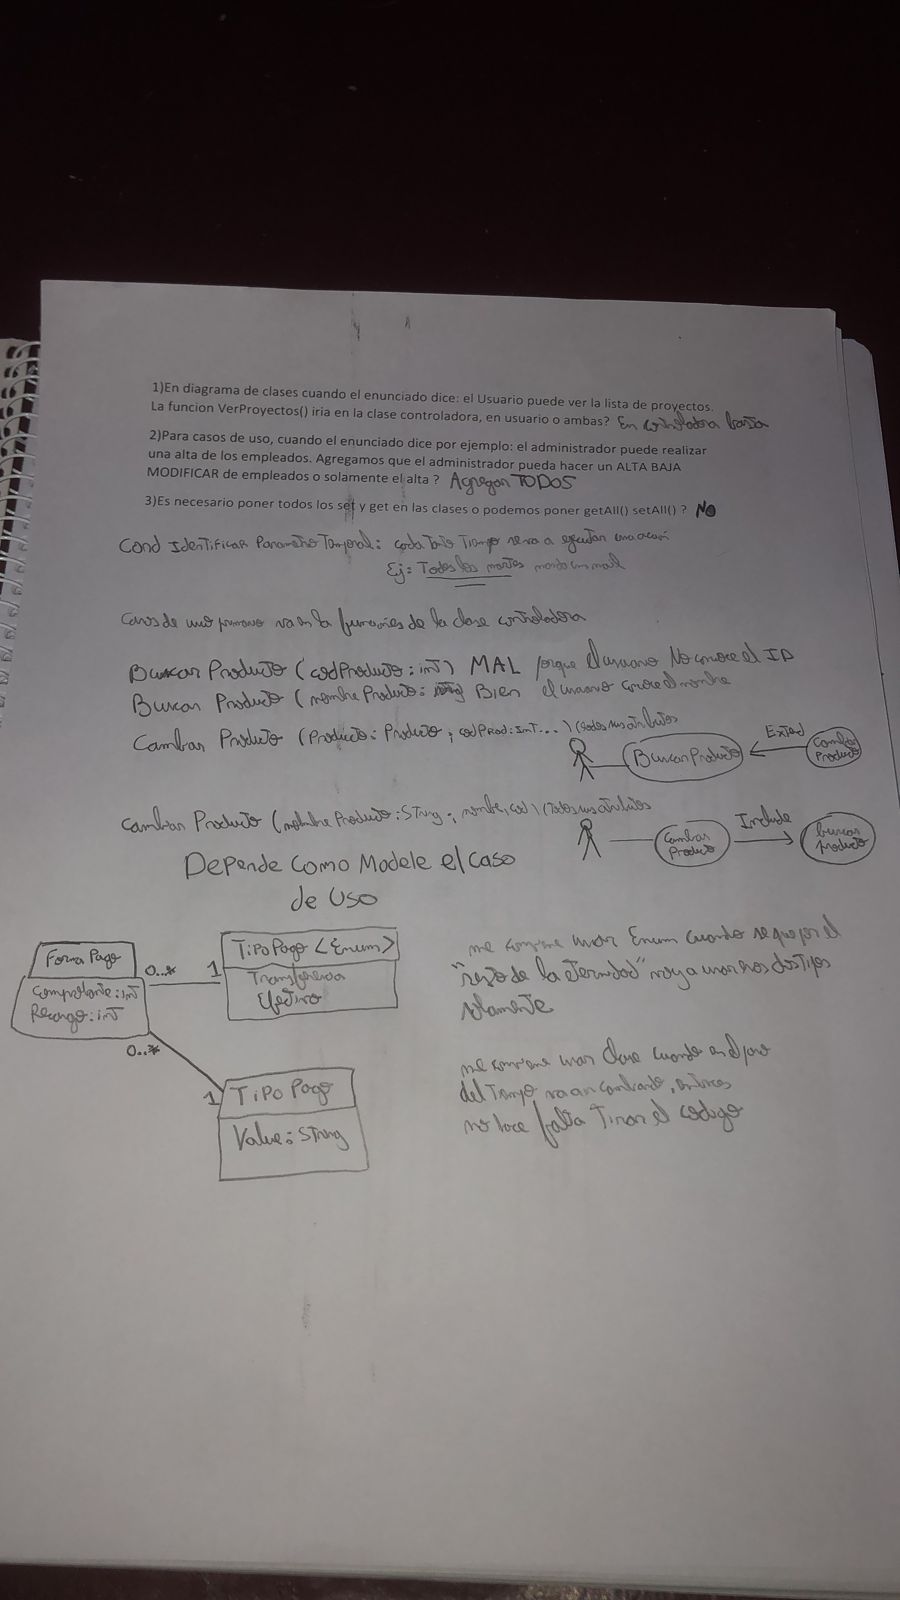 1)En diagrama de clases cuando el enunciado dice: el Usuario puede ver la lista de proyectos.
La funcion VerProyectos() iria en la clase controladora, en usuario o ambas? En controladora basta
2)Para casos de uso, cuando el enunciado dice por ejemplo: el administrador puede realizar
una alta de los empleados. Agregamos que el administrador pueda hacer un ALTA BAJA
MODIFICAR de empleados o solamente el alta ? Agregan TODOS
3)Es necesario poner todos los set y get en las clases o podemos poner getAll() setAll() ? NO
Cond Identificar Parametro Temporal: cada tanto Tiempo se va a ejecutar una acción
Ej: Todos los martes mando un mail
Casos de uso primario va en la funciones de la clase controladora
Buscar Producto (codProducto: int) MAL porque el usuario No conoce el ID
Buscar Producto (nombre Producto: Bien el usuario conoce el nombre
Cambiar Producto (Producto: Producto, codProd: Int...) (todos sus atributos
Buscar Producto
Extend
Cambiar
Producto
Cambiar Producto (nombre Producto: String, nombre, cod) (Todos sus atributos
Cambiar
Producto
Include
buscar
producto
Depende Como Modele el Caso
de Uso
Forma Pago
Comprobante: int
Recargo: int
0..*
1
TipoPago <Enum>
Transferencia
Efectivo
me conviene usar Enum cuando se que por el
"resto de la eternidad" voy a usar esos dos tipos
solamente
0..*
1
Tipo Pago
Value: String
me conviene usar clase cuando en el paso
del Tiempo van cambiando, entonces
no hace falta Tirar el codigo